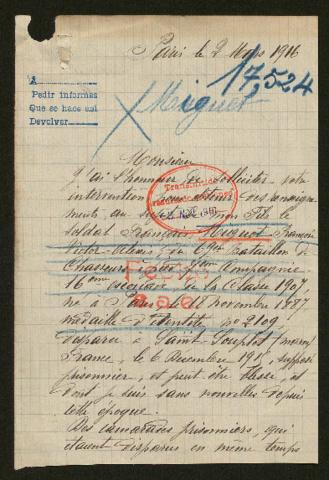 Paris le 2 Mars 1916
17,524
A
Pedir informes
Que se hace así
Devolver
Miguet
Monsieur
J'ai l'honneur de solliciter votre
intervention pour obtenir des renseigne-
ments au sujet de mon fils le
soldat français Miguet François
Victor Alexis du 67ème Bataillon de
Chasseurs à pied, Compagnie
16ème escouade de la classe 1907
né à Paris le 18 novembre 1887
médaille d'Identité no 2109,
disparu à Saint-Souplet (marne)
France, le 6 Décembre 1915, supposé
prisonnier, et peut être blessé, et
dont je suis sans nouvelles depuis
cette époque.
Des camarades prisonniers, qui
étaient disparus en même temps